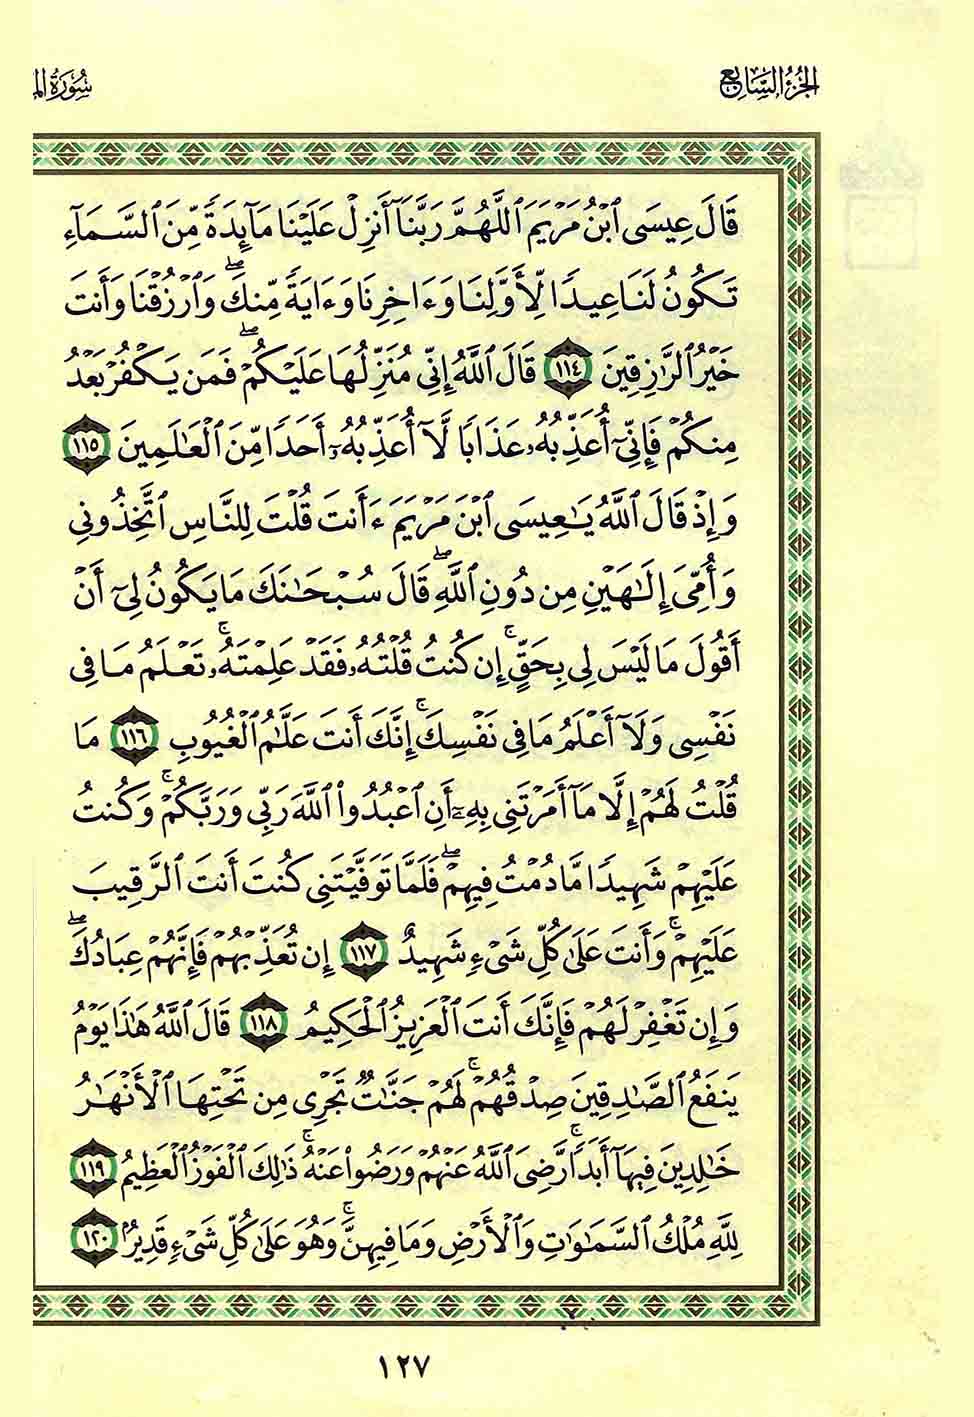 الجزء السابع
سورة الم
قَالَ عِيسَى ٱبْنُ مَرْيَمَ ٱللَّهُمَّ رَبَّنَآ أَنزِلْ عَلَيْنَا مَآئِدَةً مِّنَ ٱلسَّمَآءِ
تَكُونُ لَنَا عِيدًا لِّأَوَّلِنَا وَءَاخِرِنَا وَءَايَةً مِّنكَ ۖ وَٱرْزُقْنَا وَأَنتَ
خَيْرُ ٱلرَّٰزِقِينَ ١١٤ قَالَ ٱللَّهُ إِنِّى مُنَزِّلُهَا عَلَيْكُمْ ۖ فَمَن يَكْفُرْ بَعْدُ
مِنكُمْ فَإِنِّىٓ أُعَذِّبُهُۥ عَذَابًا لَّآ أُعَذِّبُهُۥٓ أَحَدًا مِّنَ ٱلْعَٰلَمِينَ ١١٥
وَإِذْ قَالَ ٱللَّهُ يَٰعِيسَى ٱبْنَ مَرْيَمَ ءَأَنتَ قُلْتَ لِلنَّاسِ ٱتَّخِذُونِى
وَأُمِّىَ إِلَٰهَيْنِ مِن دُونِ ٱللَّهِ ۖ قَالَ سُبْحَٰنَكَ مَا يَكُونُ لِىٓ أَنْ
أَقُولَ مَا لَيْسَ لِى بِحَقٍّ ۚ إِن كُنتُ قُلْتُهُۥ فَقَدْ عَلِمْتَهُۥ ۚ تَعْلَمُ مَا فِى
نَفْسِى وَلَآ أَعْلَمُ مَا فِى نَفْسِكَ ۚ إِنَّكَ أَنتَ عَلَّٰمُ ٱلْغُيُوبِ ١١٦ مَا
قُلْتُ لَهُمْ إِلَّا مَآ أَمَرْتَنِى بِهِۦٓ أَنِ ٱعْبُدُوا۟ ٱللَّهَ رَبِّى وَرَبَّكُمْ ۚ وَكُنتُ
عَلَيْهِمْ شَهِيدًا مَّا دُمْتُ فِيهِمْ ۖ فَلَمَّا تَوَفَّيْتَنِى كُنتَ أَنتَ ٱلرَّقِيبَ
عَلَيْهِمْ ۚ وَأَنتَ عَلَىٰ كُلِّ شَىْءٍ شَهِيدٌ ١١٧ إِن تُعَذِّبْهُمْ فَإِنَّهُمْ عِبَادُكَ ۖ
وَإِن تَغْفِرْ لَهُمْ فَإِنَّكَ أَنتَ ٱلْعَزِيزُ ٱلْحَكِيمُ ١١٨ قَالَ ٱللَّهُ هَٰذَا يَوْمُ
يَنفَعُ ٱلصَّٰدِقِينَ صِدْقُهُمْ ۚ لَهُمْ جَنَّٰتٌ تَجْرِى مِن تَحْتِهَا ٱلْأَنْهَٰرُ
خَٰلِدِينَ فِيهَآ أَبَدًا ۚ رَّضِىَ ٱللَّهُ عَنْهُمْ وَرَضُوا۟ عَنْهُ ۚ ذَٰلِكَ ٱلْفَوْزُ ٱلْعَظِيمُ ١١٩
لِلَّهِ مُلْكُ ٱلسَّمَٰوَٰتِ وَٱلْأَرْضِ وَمَا فِيهِنَّ ۚ وَهُوَ عَلَىٰ كُلِّ شَىْءٍ قَدِيرٌۢ ١٢٠
١٢٧